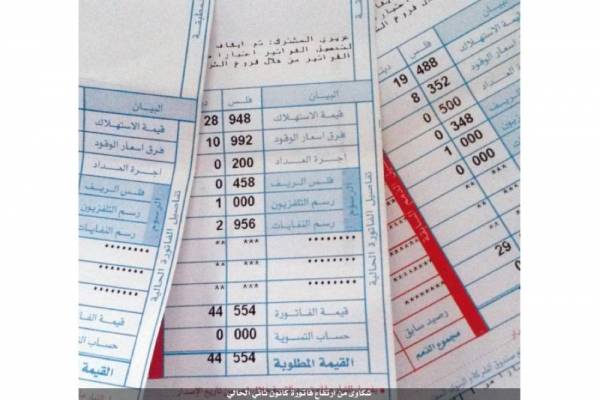 عزيزي المشترك: تم ايقاف
لتحصيل الفواتير اعتبارا
الفواتير من خلال فروع الشر
البيان فلس
قيمة الاستهلاك 948 28
فرق اسعار الوقود 992 10
اجرة العداد 200 0
الرسوم
فلس الريف 458 0
رسم التلفزيون 000 1
رسم النفايات 956 2
******** *** **
******** *** **
******** *** **
قيمة الفاتورة 554 44
حساب التسوية 000 0
القيمة المطلوبة 554 44
تفاصيل الفاتورة الحالية
البيان
قيمة الاستهلاك
فرق اسعار الوقود
اجرة العداد
الرسوم
فلس الريف
رسم التلفزيون
رسم النفايات
********
********
********
قيمة الفاتورة
حساب التسوية
القيمة
تفاصيل الفاتورة الحالية
البيان
فلس
قيمة الاستهلاك 488 19
فرق اسعار الوقود 352 8
اجرة العداد 500 0
فلس الريف 348 0
رسم التلفزيون 000 1
رسم 000 0
29
رصيد سابق
مجموع الذمم
شكاوى من ارتفاع فاتورة كانون ثاني الحالي